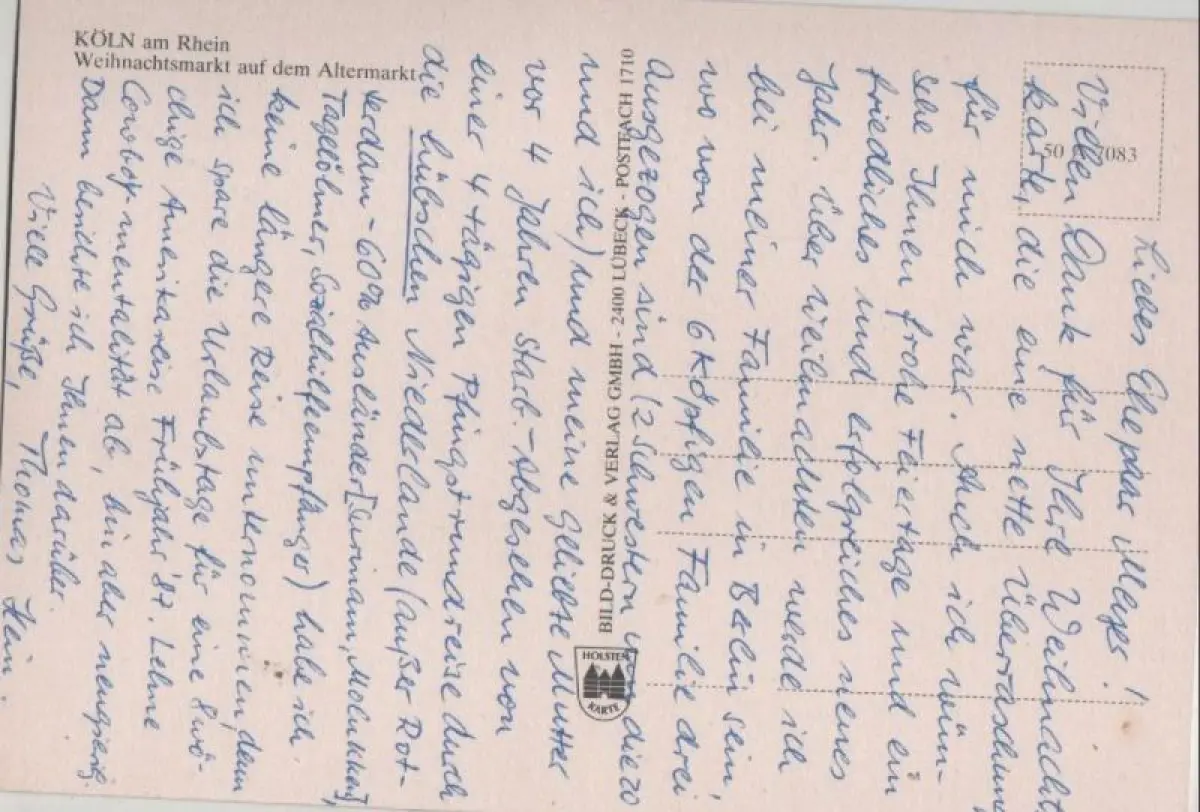 KÖLN am Rhein
Weihnachtsmarkt auf dem Altermarkt
50 7083
BILD-DRUCK & VERLAG GMBH - 2400 LÜBECK - POSTFACH 1710
HOLSTEN
KARTE
Liebes Ehepaar !
Vielen Dank für Ihre Weihnachts
karte, die eine nette Überraschung
für mich war. Auch ich wün-
sche Ihnen frohe Feiertage und ein
friedliches und erfolgreiches neues
Jahr. Über Weihnachten werde ich
bei meiner Familie in Berlin sein,
wo von der 6 köpfigen Familie drei
ausgezogen sind (2 Schwestern
und ich) und meine Geliebte Mutter
vor 4 Jahren starb. - Abgesehen von
einer 4 tägigen Pfingstrundreise durch
die hübschen Niederlande (außer Rot-
terdam - 60% Ausländer [Surinam, Molukken],
Tagelöhner, Sozialhilfeempfänger) habe ich
keine längere Reise unternommen, denn
ich spare die Urlaubstage für eine 8 wö-
chige Amerikareise Frühjahr '87. Lehne
Cowboymentalität ab, bin aber neugierig.
Dann berichte ich Ihnen darüber.
Viele Grüße,
Thomas